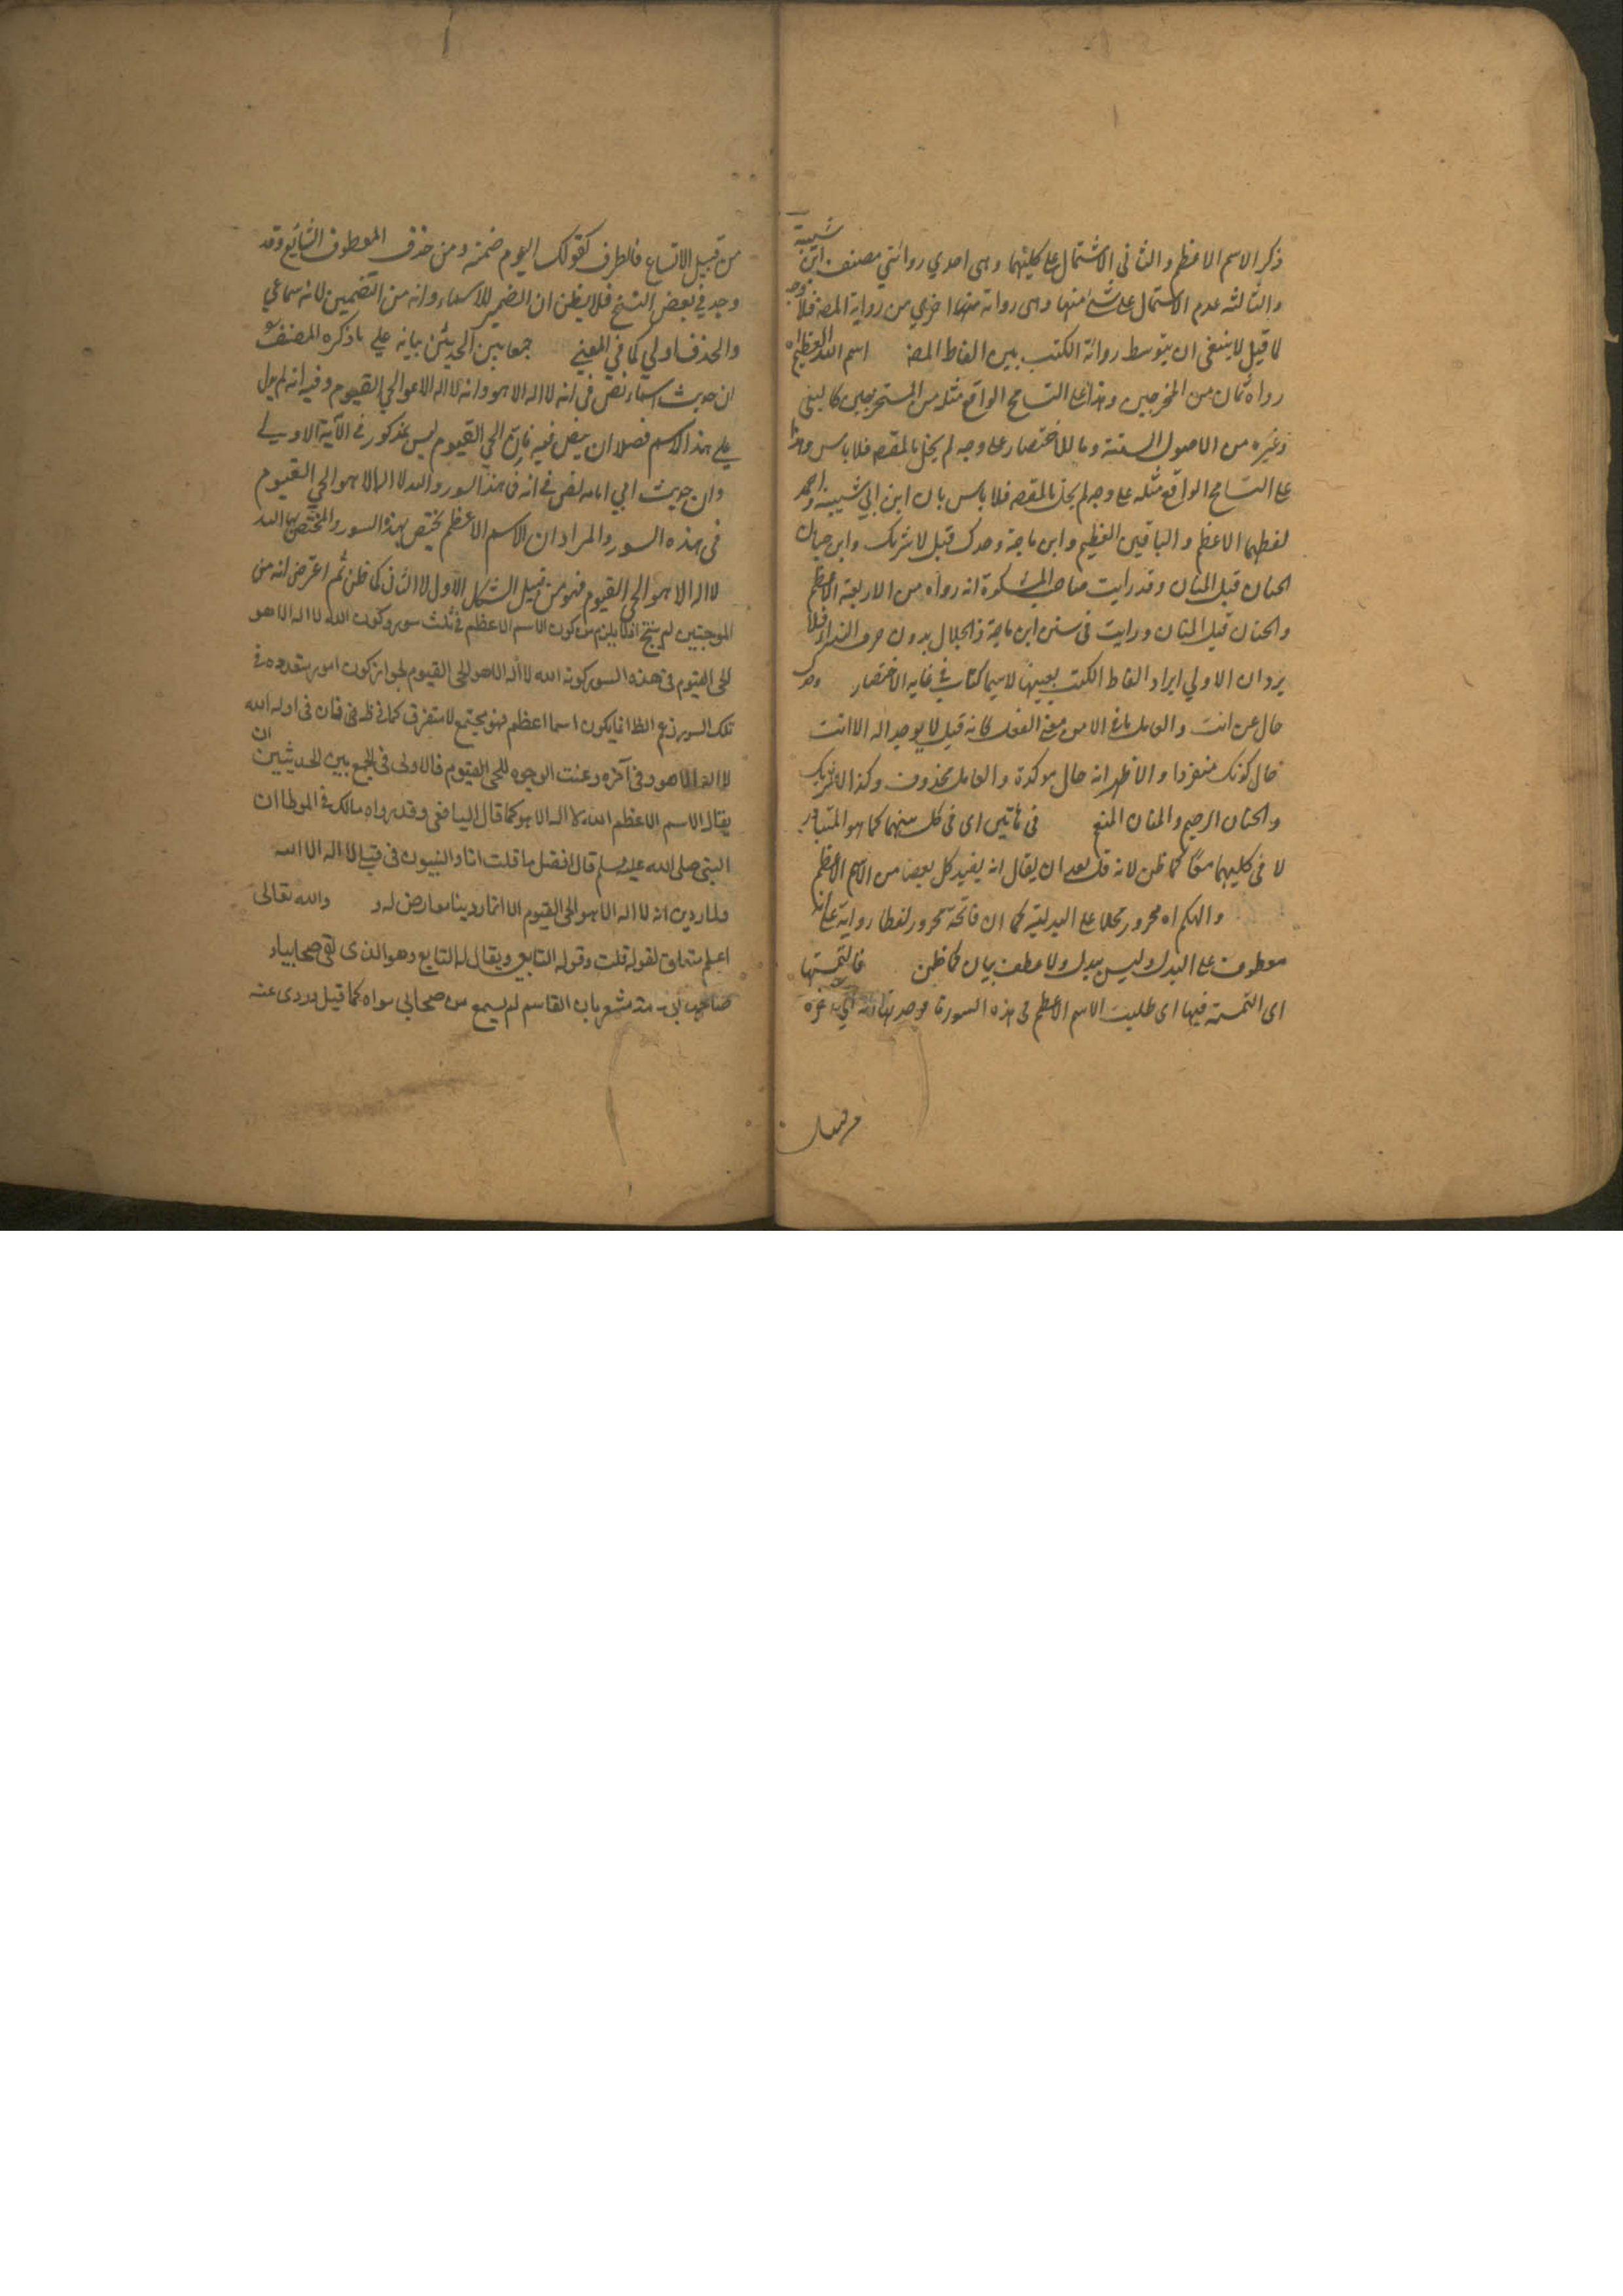 ذكر الاسم الاعظم والثانى الاشتمال على كليتهما وهى احدي روايتي مصنف ابن شيبة
والثالثه عدم الاشتمال على شئ منها وهى رواية منها اخرى من رواية المصـ فلا وجه
لما قيل لا ينبغى ان يتوسط رواية الكتب بين الفاظ المصـ اسم الله العظيم اه
رواه ثمان من المخرجين وهذا على التسامح الواقع مثله من المستخرجين كالبيهقى
وغيره من الاصول الستة وما للاختصار على وجه لم يخل بالمقصـ فلا باس وهذا
على التسامح الواقع مثله على وجه لم يخل بالمقصـ فلا باس بان ابن ابي شيبة واحمد
لفظهما الاعظم والباقين العظيم وابن ماجة وحدك قبل لا شريك وابن حبان
الحنان قبل المنان وقد رايت صاحب المشكوة انه رواه من الاربعة الاعظم
والحنان قبل المنان ورايت فى سنن ابن ماجة ذا الجلال بدون حرف النداء فلا
يرد ان الاولي ايراد الفاظ الكتب بعينها لاسيما كتاب فى غاية الاختصار وحدك
حال عن انت والعامل ما فى الا من معنى الفعل كانه قيل لا يوجد اله الا انت
حال كونك منفردا والاظهر انه حال موكدة والعامل محذوف وكذا لا شريك
والحنان الرحيم والمنان المنعم فى هاتين اى فى كل منهما كما هو المتبادر
لا فى كليهما معًا كما ظن لانه قد بعد ان يقال انه يفيد كل بعضا من الاسم الاعظم
والهكم اه مجرور محلا على البدلية كما ان فاتحة مجرور لفظا رواية على انه
معطوف على البدل وليس ببدل ولا عطف بيان كما ظن فالتمستها
اى التمسته فيها اى طلبت الاسم الاعظم فى هذه السور فوجدتها انه اي غره
من قبيل
من قبيل الاتساع فى الظرف كقولك اليوم ضمته ومن حذف المعطوف الشايع وقد
وجد في بعض النسخ فلا يظن ان الضمير للاسماء وانه من التضمين لانه سماعي
والحذف اولي كما في المغني جمعا بين الحديثين بيانه علي ما ذكره المصنف هو
ان حديث اسماء نص فى انه لا اله الا هو وانه لا اله الا هو الحي القيوم وفيه انه لم يدل
علي هذا الاسم فضلا ان ينص فيه فان الحي القيوم ليس بمذكور فى الآية الاولي
وان حديث ابي امامه نص فى انه فى هذا السور والله لا اله الا هو الحي القيوم
فى هذه السور والمراد ان الاسم الاعظم يختص بهذه السور والمختص بها الله
لا اله الا هو الحي القيوم فهو من قبيل الشكل الاول لا الثانى كما ظن ثم اعترض انه من
الموجبتين لم ينتج افكا يلزم من كون الاسم الاعظم فى ثلث سور وكون الله لا اله الا هو
الحى القيوم فى هذه السور كونه الله لا اله الا هو الحى القيوم لجواز كون امور متعدده فى
تلك السور زعم الظا انما يكون اسما اعظم فهو مجتمع لا متفرق كما فى ظـ فى فان فى اوله الله
لا اله الا هو وفى آخره وعنت الوجوه للحى القيوم فالاولى فى الجمع بين الحديثين ان
يقال الاسم الاعظم الله لا اله الا هو كما قال اليافعى وقد رواه مالك فى الموطا ان
النبى صلى الله عليه وسلم قال افضل ما قلت انا والنبيون من قبلى لا اله الا الله
ولما روى انه لا اله الا هو الحى القيوم الا انما روينا معارض له و والله تعالى
اعلم متعلق لقوله قلت وقوله التابعى ويقال له التابع وهو الذى لقى صحابيا و
صاحب ابى مشعر بان القاسم لم يسمع من صحابى سواه كما قيل وروى عنه